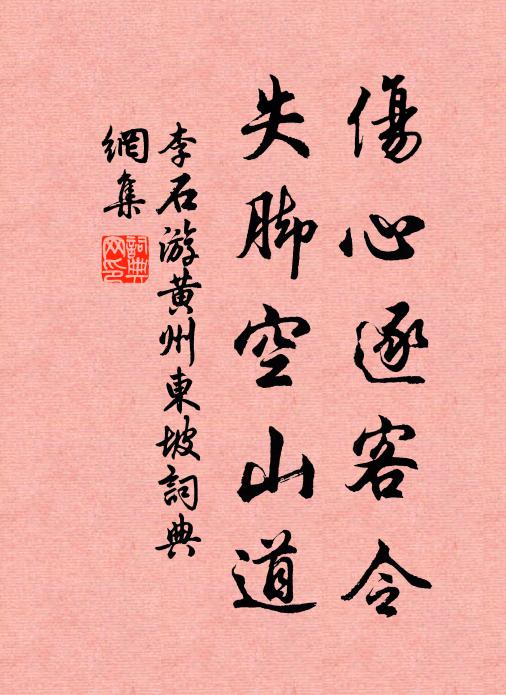 傷心逐客令
失脚空山道
李石游黄州東坡詞典
網集
詞典網印